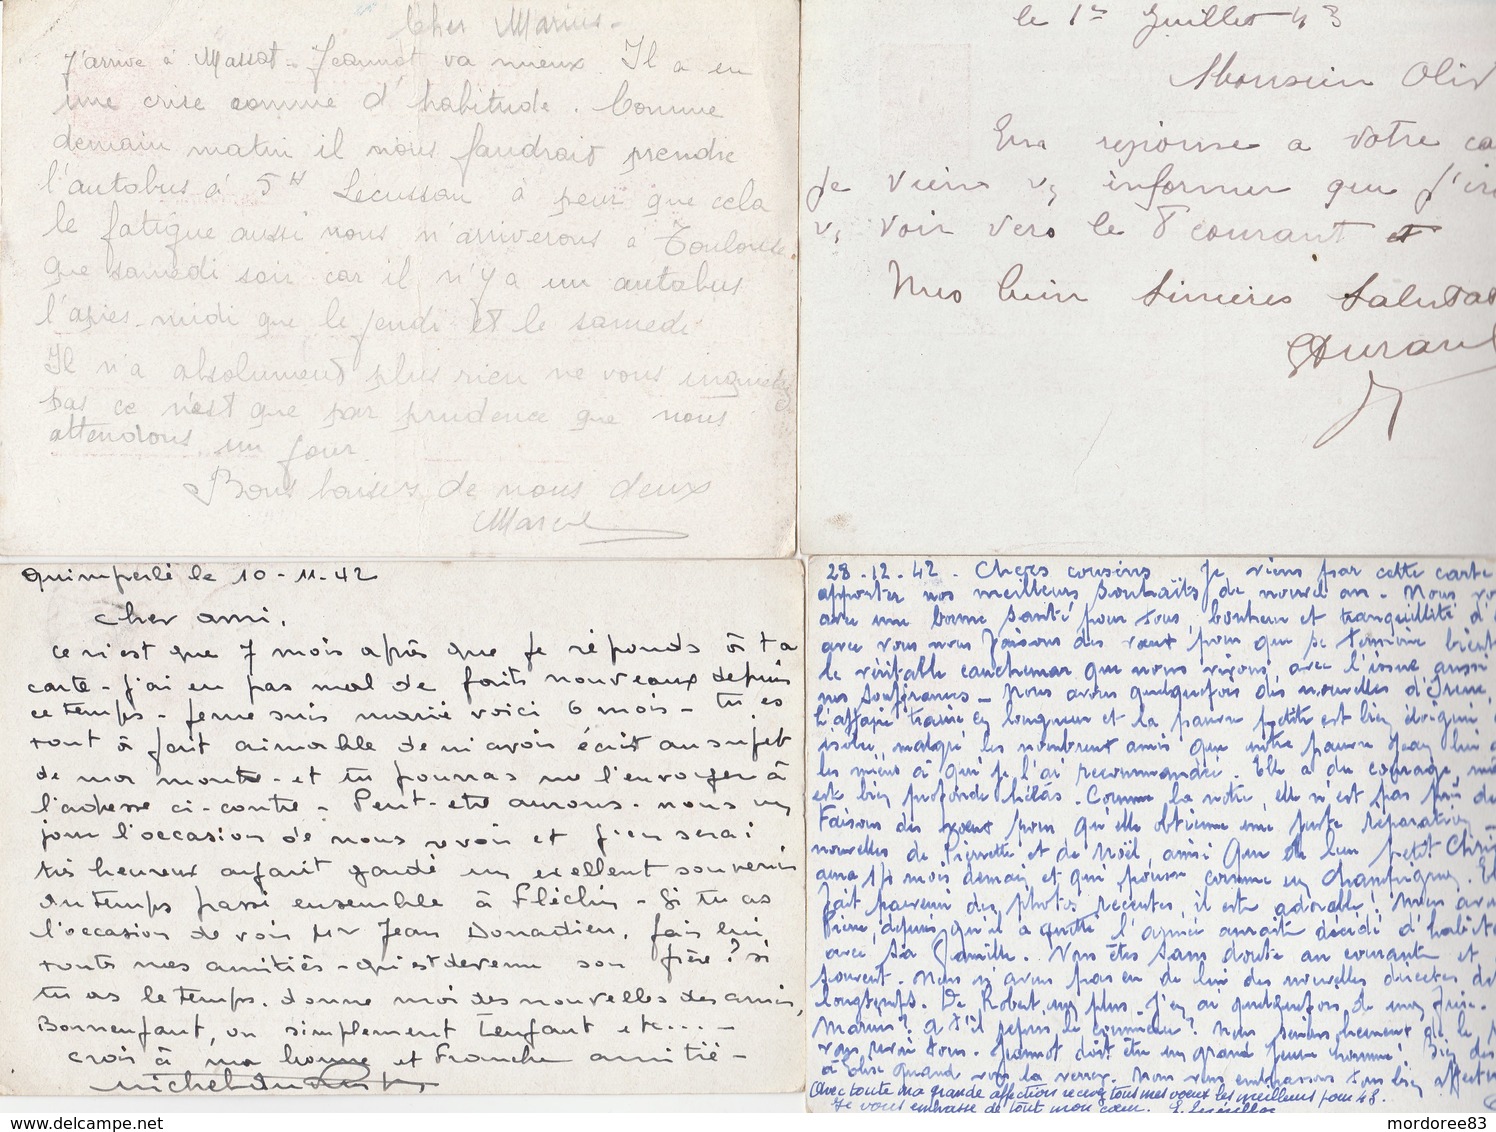 Cher Marius -
J'arrive à Massat - Jeannot va mieux. Il a eu
une crise comme d'habitude. Comme
demain matin il nous faudrait prendre
l'autobus à 5H Lécussan à peur que cela
le fatigue aussi nous n'arriverons à Toulouse
que samedi soir car il n'y a un autobus
l'après-midi que le jeudi et le samedi
Il n'a absolument plus rien ne vous inquiétez
pas ce n'est que par prudence que nous
attendrons un jour.
Bons baisers de nous deux
Marcel
le 1er Juillet 43
Monsieur Oliv
En reponse a votre ca
Je viens vs informer que j'ir
vs voir vers le 8 courant et
Mes bien Sincères Salutat
Durand
Quimperlé le 10-11-42
cher ami,
ce n'est que 7 mois après que je réponds à ta
carte - j'ai eu pas mal de faits nouveaux depuis
ce temps - je me suis marié voici 6 mois - tu es
tout à fait aimable de m'avoir écrit au sujet
de ma montre - et tu pourras me l'envoyer à
l'adresse ci-contre - Peut-etre aurons-nous un
jour l'occasion de nous revoir et j'en serai
très heureux ayant gardé un exellent souvenir
du temps passé ensemble à Fléchin - Si tu as
l'occasion de voir Mr Jean Donadieu, fais lui
toutes mes amitiés - qu'est devenu son frère? si
tu as le temps, donne moi des nouvelles des amis,
Bonnenfant, ou simplement Tenfant etc... -
crois à ma bonne et Franche amitié -
28.12.42. Chers cousins Je viens par cette carte
apporter nos meilleurs souhaits de nouvel an. Nous vo
avec une bonne santé pour tous, bonheur et tranquillité d'
avec vous nous faisons des vœux pour que se termine bient
le véritable cauchemar que nous vivons, avec l'issue aussi
nos souffrances - Nous avons quelquefois des nouvelles d'Irène.
L'affaire traine en longueur et la pauvre petite est bien
isolée, malgré les nombreux amis que notre pauvre Jean lui
les miens à qui je l'ai recommandée. Elle a du courage, mais
est bien profonde hélas. Comme la notre, elle n'est pas près de
Faisons des vœux pour qu'elle obtienne une juste réparation -
nouvelles de Pierrette et de Noël, ainsi que de leur petit Chri
aura mois demain et qui pousse comme un champignon. El
fait parvenir des photos récentes, il est adorable! Nous av
Pierre, depuis qu'il a quitté l'armée aurait décidé d'habite
avec sa famille. Vous êtes sans doute au courant et
souvent. Nous n'avons pas eu de lui des nouvelles directes de
longtemps. De Robert, non plus. J'en ai quelquefois de mon frère.
Marius? A t'il repris le commerce?
vous revoir tous. Jeannot doit être un grand jeune homme!
à Elise quand vous la verrez. Nous vous embrassons tous bien affectu
Avec toute ma grande affection recevez tous mes voeux les meilleurs pour 43.
Je vous embrasse de tout mon cœur.
mordoree83
www.delcampe.net